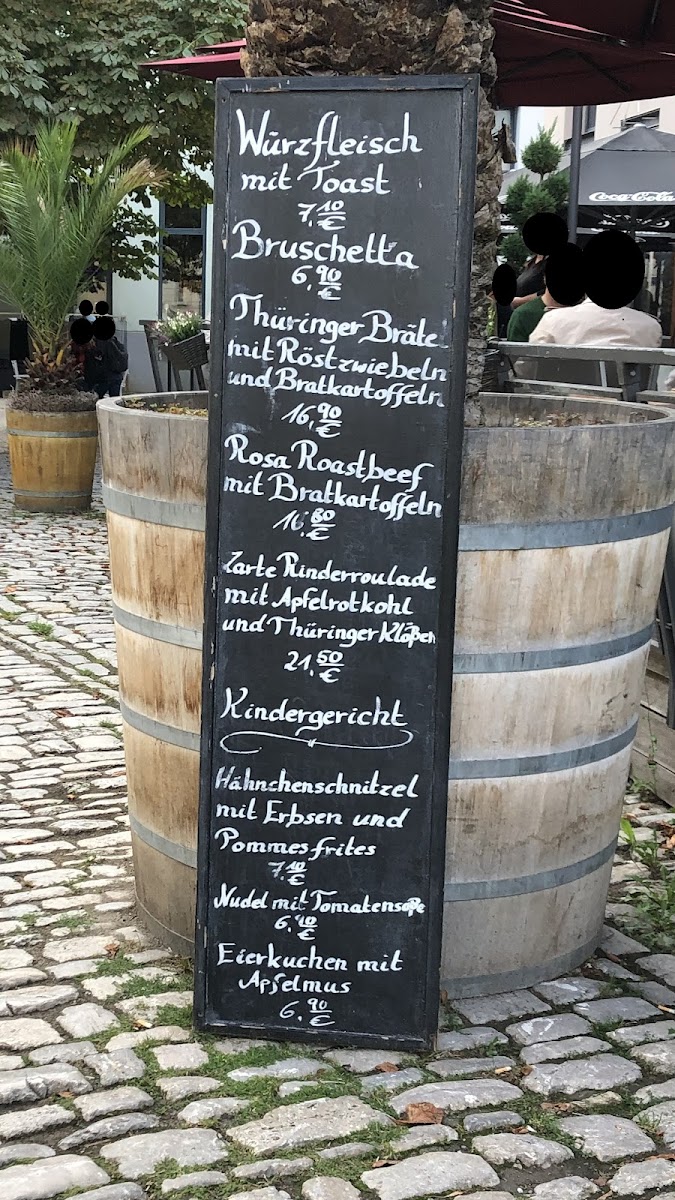 Würzfleisch
mit Toast
7,10 €
Bruschetta
6,90 €
Thüringer Bräte
mit Röstzwiebeln
und Bratkartoffeln
16,90 €
Rosa Roastbeef
mit Bratkartoffeln
16,80 €
Zarte Rinderroulade
mit Apfelrotkohl
und Thüringer Klößen
21,50 €
Kindergericht
Hähnchenschnitzel
mit Erbsen und
Pommes frites
7,10 €
Nudel mit Tomatensoße
6,10 €
Eierkuchen mit
Apfelmus
6,90 €
Coca-Cola